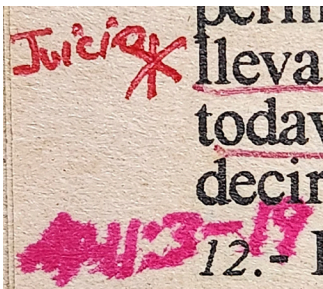 Juicio*
lleva
todav
decir
11:3-19
12.-